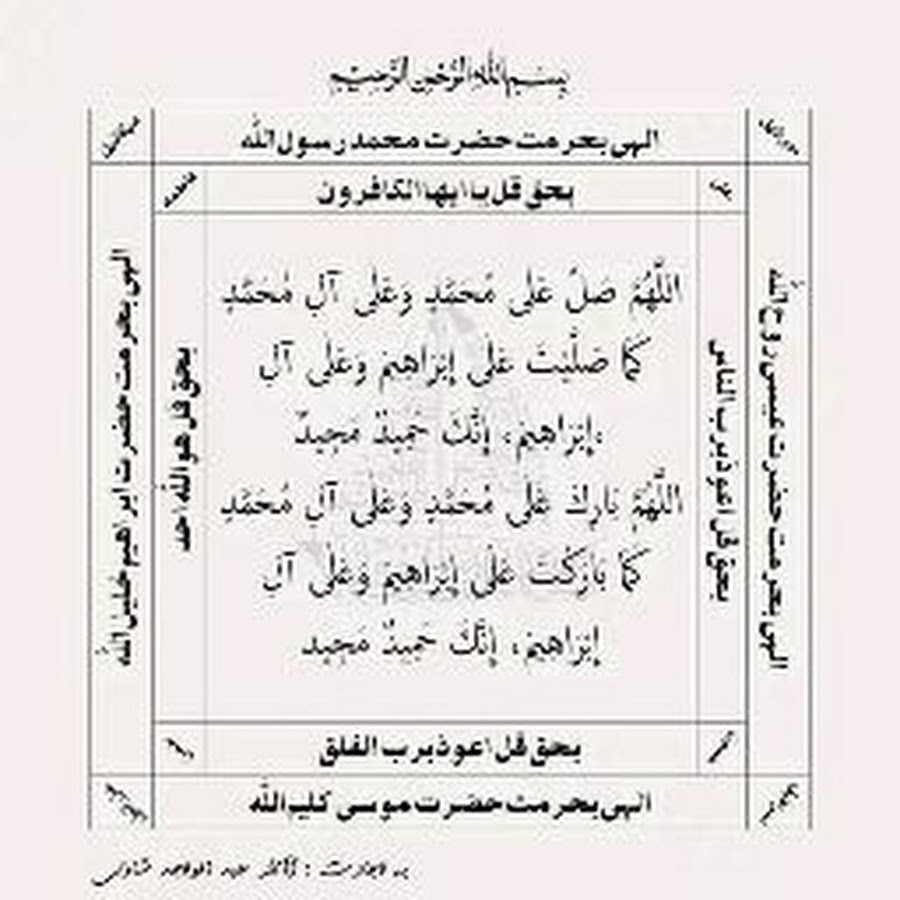 بسم الله الرحمن الرحيم
الہی بحرمت حضرت محمد رسول الله
بحق قل یا ایها الکافرون
علی
فاطمه
اللَّهُمَّ صَلِّ عَلَى مُحَمَّدٍ وَعَلَى آلِ مُحَمَّدٍ
كَمَا صَلَّيْتَ عَلَى إِبْرَاهِيمَ وَعَلَى آلِ
إِبْرَاهِيمَ، إِنَّكَ حَمِيدٌ مَجِيدٌ
اللَّهُمَّ بَارِكْ عَلَى مُحَمَّدٍ وَعَلَى آلِ مُحَمَّدٍ
كَمَا بَارَكْتَ عَلَى إِبْرَاهِيمَ وَعَلَى آلِ
إِبْرَاهِيمَ، إِنَّكَ حَمِيدٌ مَجِيد
الہی بحرمت حضرت عیسی روح الله
بحق قل اعوذ برب الناس
بحق قل هو الله احد
الہی بحرمت حضرت ابراهیم خلیل الله
بحق قل اعوذ برب الفلق
الہی بحرمت حضرت موسی کلیم الله